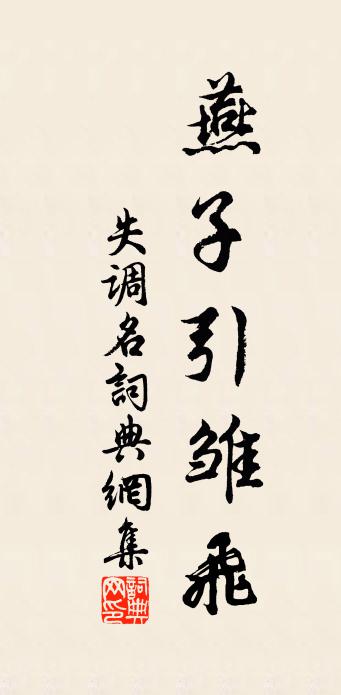 燕子引雏飛
失调名詞典網集
詞典网印